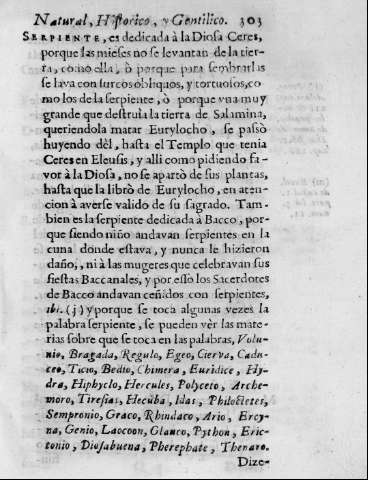 Natural, Historico, y Gentilico. 303
SERPIENTE, es dedicada à la Diosa Ceres,
porque las mieses no se levantan de la tier-
ra, como ella, ò porque para sembrarlas
se lava con surcos obliquos, y tortuosos, co
mo los de la serpiente, ò porque vna muy
grande que destruìa la tierra de Salamina,
queriendola matar Eurylocho, se passò
huyendo dèl, hasta el Templo que tenia
Ceres en Eleusis, y alli como pidiendo fa-
vor à la Diosa, no se apartò de sus plantas,
hasta que la librò de Eurylocho, en aten-
cion à averse valido de su sagrado. Tam-
bien es la serpiente dedicada à Bacco, por-
que siendo niño andavan serpientes en la
cuna donde estava, y nunca le hizieron
daño, , ni à las mugeres que celebravan sus
fiestas Baccanales, y por esso los Sacerdotes
de Bacco andavan ceñidos con serpientes,
ibi. (j) y porque se toca algunas vezes la
palabra serpiente, se pueden vèr las mate-
rias sobre que se toca en las palabras, Volu-
nio, Bragada, Regulo, Egeo, Cierva, Cadu-
ceo, Ticio, Bedio, Chimera, Euridice, Hy-
dra, Hiphyclo, Hercules, Polyceto, Arche-
moro, Tiresias, Hecuba, Idas, Philoctetes,
Sempronio, Graco, Rhindaco, Ario, Ercy-
na, Genio, Laocoon, Glauco, Python, Eric-
tonio, Diosabuena, Pherephate, Thenaro.
Dize-